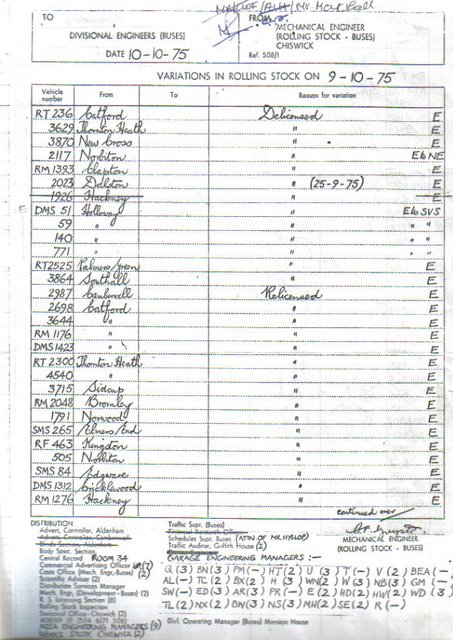 TO
FROM
DIVISIONAL ENGINEERS (BUSES)
MECHANICAL ENGINEER
(ROLLING STOCK - BUSES)
CHISWICK
DATE 10-10-75
Ref. 508/1
VARIATIONS IN ROLLING STOCK ON 9-10-75
Vehicle number From To Reason for variation
RT 236 Catford Delicensed E
3629 Thornton Heath " E
3870 New Cross " E
2117 Norbiton " E to NE
RM 1393 Clapton " E
2023 Dalston " (25-9-75) E
1926 Hackney " E
DMS 51 Holloway " E to SVS
59 " " " "
140 " " " "
771 " " " "
RT 2525 Palmers Green " E
3864 Southall " E
2987 Camberwell Relicensed E
2698 Catford " E
3644 " " E
RM 1176 " " E
DMS 1423 " " E
RT 2300 Thornton Heath " E
4540 " " E
3715 Sidcup " E
RM 2048 Bromley " E
1791 Norwood " E
SMS 265 Elmers End " E
RF 463 Kingston " E
505 Norbiton " E
SMS 84 Edgware " E
DMS 1312 Cricklewood " E
RM 1276 Hackney " E
continued over
DISTRIBUTION
MECHANICAL ENGINEER
(ROLLING STOCK - BUSES)
Advert. Controller, Aldenham
Advert. Controller, Camberwell
Body Spec. Section
Central Record ROOM 34
Commercial Advertising Officer
Costs Office (Mech. Engr.-Buses) (2)
Scientific Adviser (2)
Distribution Services Manager
Mech. Engr. (Development - Buses) (2)
R. S. Licensing Section (8)
Rolling Stock Inspection
Technical Officer - Chiswick (2)
AREA ENGINEERING MANAGERS (9)
WORKS STUDY, CHISWICK (2)
Traffic Supt. (Buses)
Schedules Supt. (Buses) (ATTN OF MR. HYSLOP)
Traffic Auditor, Griffith House (2)
GARAGE ENGINEERING MANAGERS :-
Q (3) BN (3) PM (-) HT (2) U (3) T (-) V (2) BEA (-)
AL (-) TC (2) BX (2) H (3) WN (2) W (3) NB (3) GM (-)
SW (-) ED (3) AR (3) PR (-) E (2) HD (2) HW (2) WD (3)
TL (2) NX (2) BW (3) NS (3) MH (2) SE (2) R (-)
Divl. Operating Manager (Buses) Mansion House